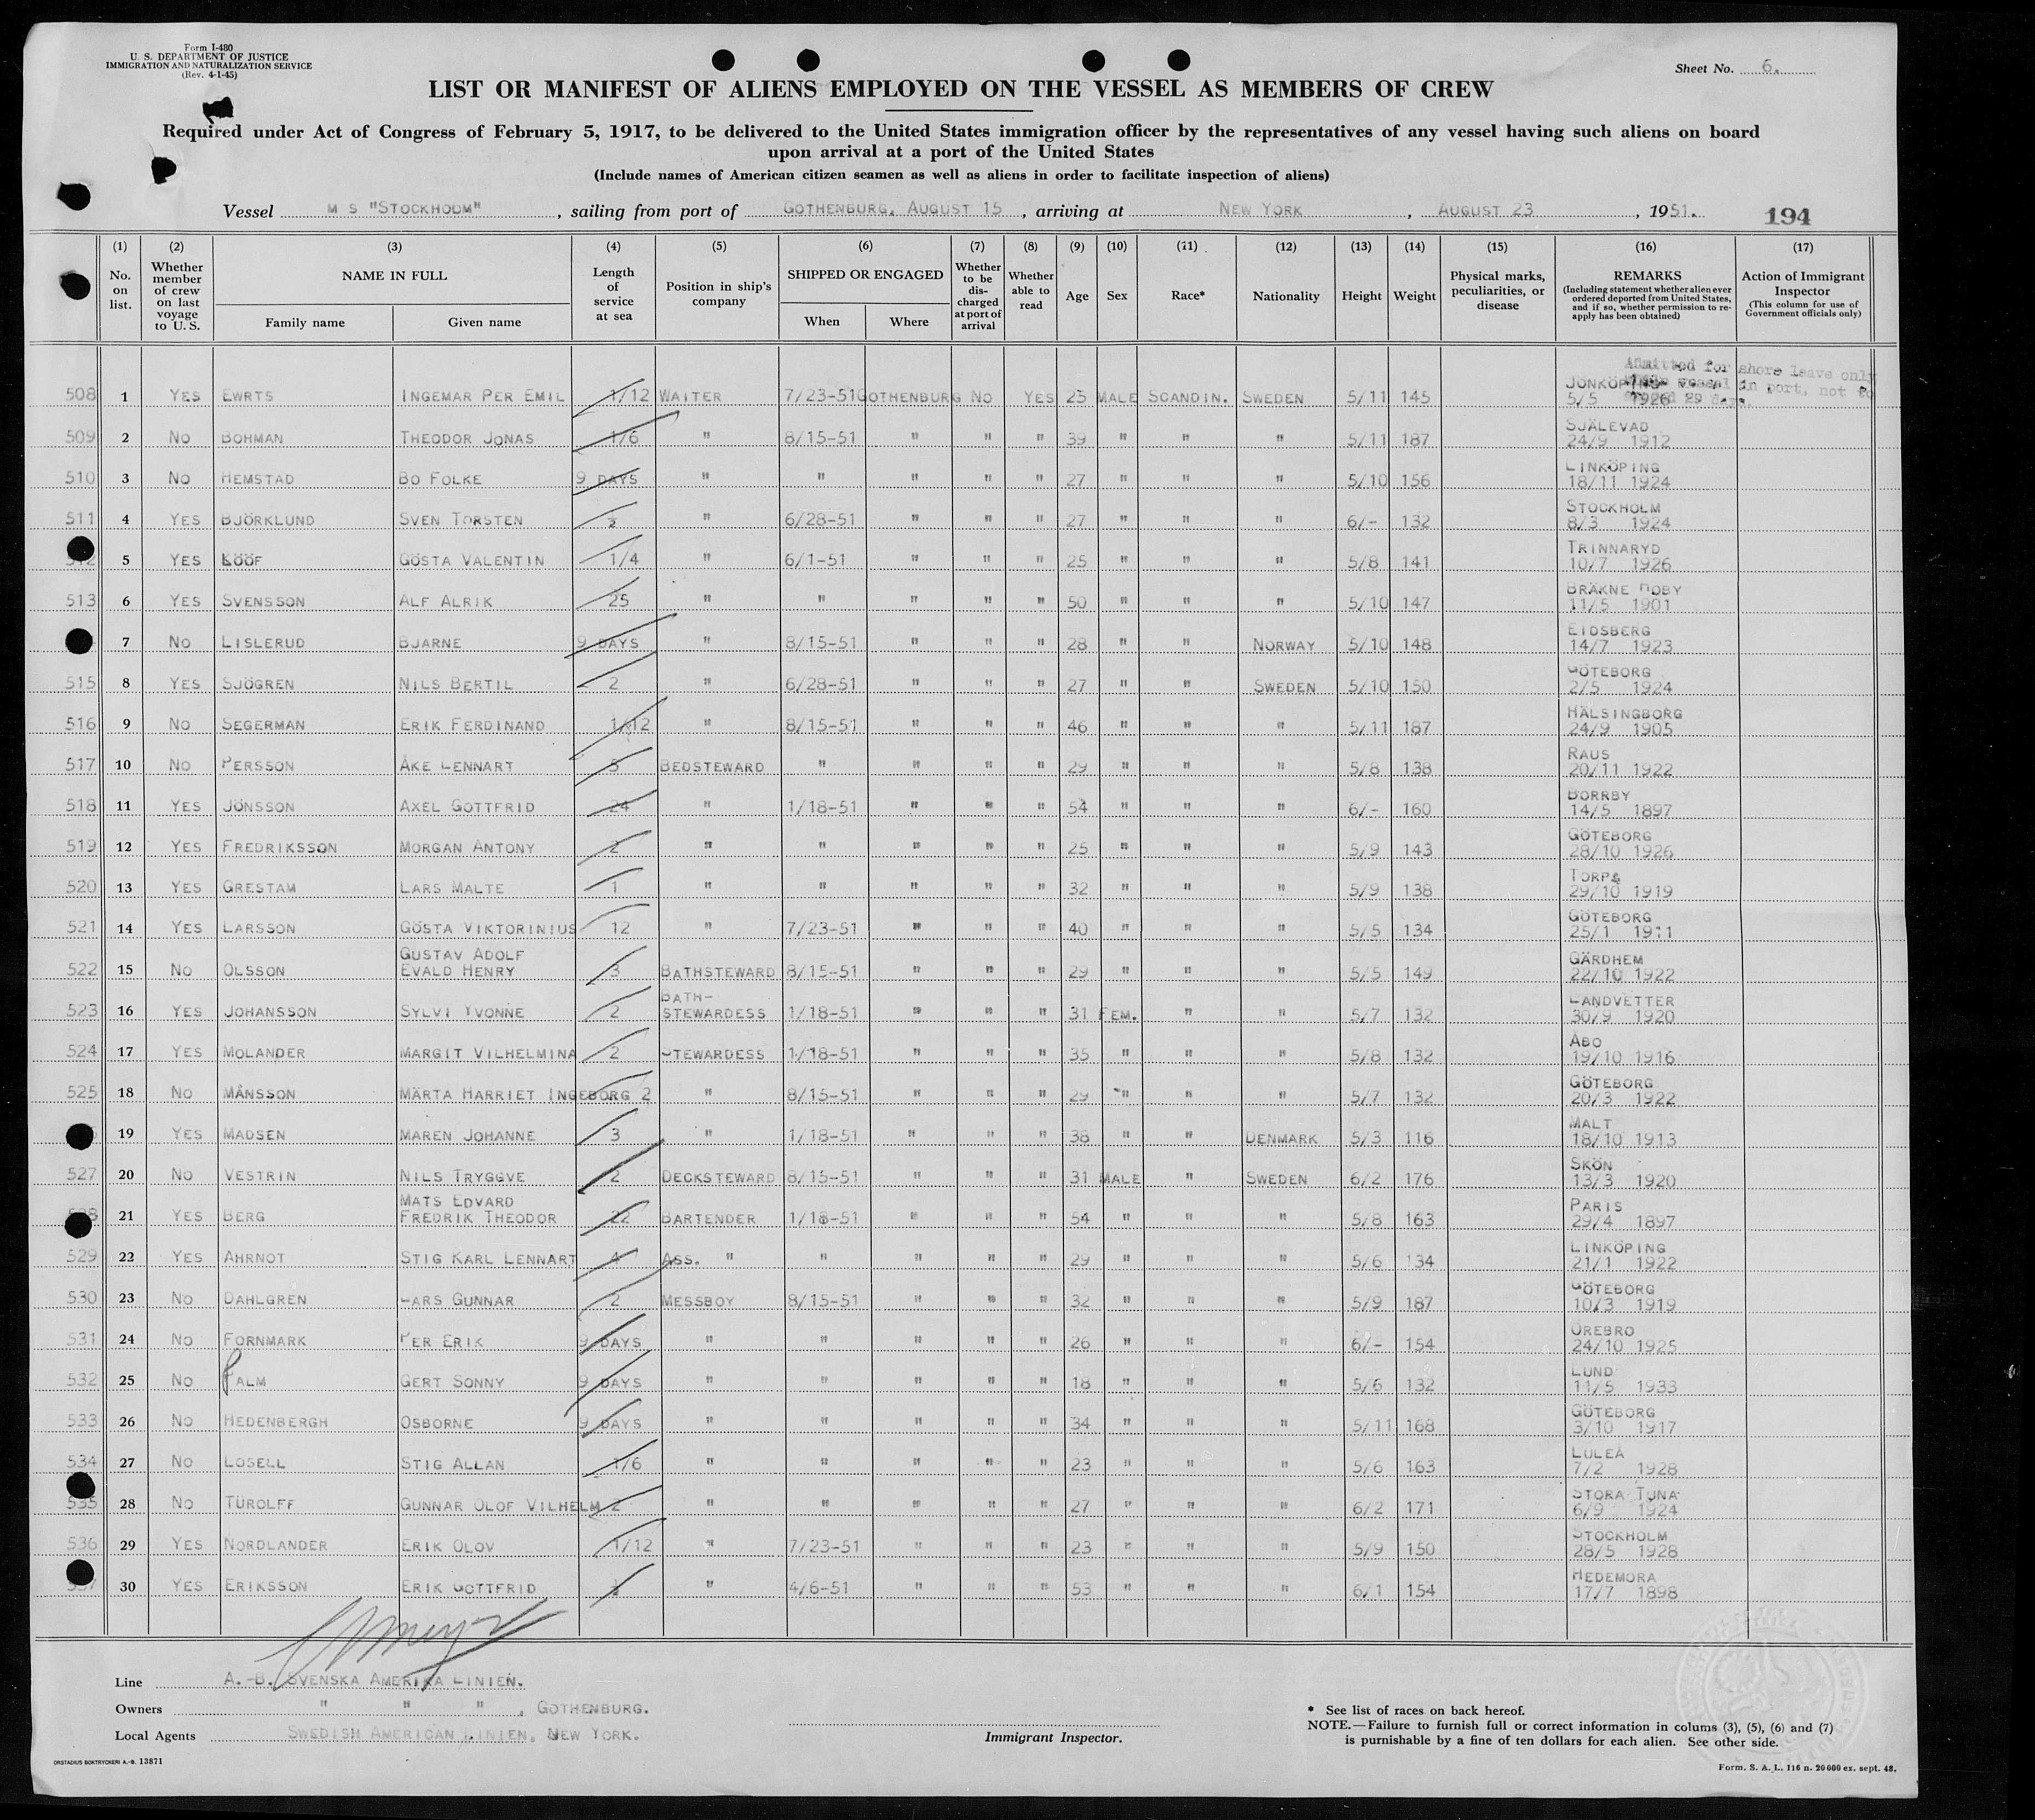 Form I-480
U. S. DEPARTMENT OF JUSTICE
IMMIGRATION AND NATURALIZATION SERVICE
(Rev. 4-1-45)
Sheet No. 6.
LIST OR MANIFEST OF ALIENS EMPLOYED ON THE VESSEL AS MEMBERS OF CREW
Required under Act of Congress of February 5, 1917, to be delivered to the United States immigration officer by the representatives of any vessel having such aliens on board
upon arrival at a port of the United States
(Include names of American citizen seamen as well as aliens in order to facilitate inspection of aliens)
Vessel M S "STOCKHOLM", sailing from port of GOTHENBURG, AUGUST 15, arriving at NEW YORK, AUGUST 23, 1951. 194
(1) (2) (3) (4) (5) (6) (7) (8) (9) (10) (11) (12) (13) (14) (15) (16) (17)
No. on list. Whether member of crew on last voyage to U. S. NAME IN FULL Family name Given name Length of service at sea Position in ship's company SHIPPED OR ENGAGED When Where Whether to be dis-charged at port of arrival Whether able to read Age Sex Race* Nationality Height Weight Physical marks, peculiarities, or disease REMARKS (Including statement whether alien ever ordered deported from United States, and if so, whether permission to re-apply has been obtained) Action of Immigrant Inspector (This column for use of Government officials only)
Admitted for shore leave only
vessel in port, not to
508 1 YES EWRTS INGEMAR PER EMIL 1/12 WAITER 7/23-51 GOTHENBURG NO YES 25 MALE SCANDIN. SWEDEN 5/11 145 JÖNKÖPING 5/5 1926
509 2 NO BOHMAN THEODOR JONAS 1/6 " 8/15-51 " " " 39 " " " 5/11 187 SJÄLEVAD 24/9 1912
510 3 NO HEMSTAD BO FOLKE 9 DAYS " " " " " 27 " " " 5/10 156 LINKÖPING 18/11 1924
511 4 YES BJÖRKLUND SVEN TORSTEN ½ " 6/28-51 " " " 27 " " " 6/- 132 STOCKHOLM 8/3 1924
5 YES KÖÖF GÖSTA VALENTIN 1/4 " 6/1-51 " " " 25 " " " 5/8 141 TRINNARYD 10/7 1926
513 6 YES SVENSSON ALF ALRIK 25 " " " " " 50 " " " 5/10 147 BRÄKNE HOBY 11/5 1901
7 NO LISLERUD BJARNE 9 DAYS " 8/15-51 " " " 28 " " NORWAY 5/10 148 EIDSBERG 14/7 1923
515 8 YES SJÖGREN NILS BERTIL 2 " 6/28-51 " " " 27 " " SWEDEN 5/10 150 GÖTEBORG 2/5 1924
516 9 NO SEGERMAN ERIK FERDINAND 1/12 " 8/15-51 " " " 46 " " " 5/11 187 HÄLSINGBORG 24/9 1905
517 10 NO PERSSON ÅKE LENNART 5 BEDSTEWARD " " " " 29 " " " 5/8 138 RAUS 20/11 1922
518 11 YES JÖNSSON AXEL GOTTFRID 24 " 1/18-51 " " " 54 " " " 6/- 160 BORRBY 14/5 1897
519 12 YES FREDRIKSSON MORGAN ANTONY 2 " " " " " 25 " " " 5/9 143 GÖTEBORG 28/10 1926
520 13 YES GRESTAM LARS MALTE 1 " " " " " 32 " " " 5/9 138 TORPA 29/10 1919
521 14 YES LARSSON GÖSTA VIKTORINIUS 12 " 7/23-51 " " " 40 " " " 5/5 134 GÖTEBORG 25/1 1911
522 15 NO OLSSON GUSTAV ADOLF EVALD HENRY 3 BATHSTEWARD 8/15-51 " " " 29 " " " 5/5 149 GÄRDHEM 22/10 1922
523 16 YES JOHANSSON SYLVI YVONNE 2 BATH-STEWARDESS 1/18-51 " " " 31 FEM. " " 5/7 132 LANDVETTER 30/9 1920
524 17 YES MOLANDER MARGIT VILHELMINA 2 STEWARDESS 1/18-51 " " " 35 " " " 5/8 132 ÅBO 19/10 1916
525 18 NO MÅNSSON MÄRTA HARRIET INGEBORG 2 " 8/15-51 " " " 29 " " " 5/7 132 GÖTEBORG 20/3 1922
19 YES MADSEN MAREN JOHANNE 3 " 1/18-51 " " " 38 " " DENMARK 5/3 116 MALT 18/10 1913
527 20 NO VESTRIN NILS TRYGGVE 2 DECKSTEWARD 8/15-51 " " " 31 MALE " SWEDEN 6/2 176 SKÖN 13/3 1920
21 YES BERG MATS EDVARD FREDRIK THEODOR 22 BARTENDER 1/18-51 " " " 54 " " " 5/8 163 PARIS 29/4 1897
529 22 YES AHRNOT STIG KARL LENNART 4 ASS. " " " " " 29 " " " 5/6 134 LINKÖPING 21/1 1922
530 23 NO DAHLGREN LARS GUNNAR 2 MESSBOY 8/15-51 " " " 32 " " " 5/9 187 GÖTEBORG 10/3 1919
531 24 NO FORNMARK PER ERIK 9 DAYS " " " " " 26 " " " 6/- 154 ÖREBRO 24/10 1925
532 25 NO PALM GERT SONNY 9 DAYS " " " " " 18 " " " 5/6 132 LUND 11/5 1933
533 26 NO HEDENBERGH OSBORNE 9 DAYS " " " " " 34 " " " 5/11 168 GÖTEBORG 3/10 1917
534 27 NO LOSELL STIG ALLAN 1/6 " " " " " 23 " " " 5/6 163 LULEÅ 7/2 1928
535 28 NO TÜROLFF GUNNAR OLOF VILHELM 2 " " " " " 27 " " " 6/2 171 STORA TUNA 6/9 1924
536 29 YES NORDLANDER ERIK OLOV 1/12 " 7/23-51 " " " 23 " " " 5/9 150 STOCKHOLM 28/5 1928
30 YES ERIKSSON ERIK GOTTFRID ½ " 4/6-51 " " " 53 " " " 6/1 154 HEDEMORA 17/7 1898
Line A.-B. SVENSKA AMERIKA LINIEN.
Owners " " " , GOTHENBURG.
Local Agents SWEDISH AMERICAN LINIEN, NEW YORK.
Immigrant Inspector.
* See list of races on back hereof.
NOTE.—Failure to furnish full or correct information in colums (3), (5), (6) and (7)
is purnishable by a fine of ten dollars for each alien. See other side.
ORSTADIUS BOKTRYCKERI A.-B. 13871
Form. S. A. L. 116 n. 20000 ex. sept. 48.